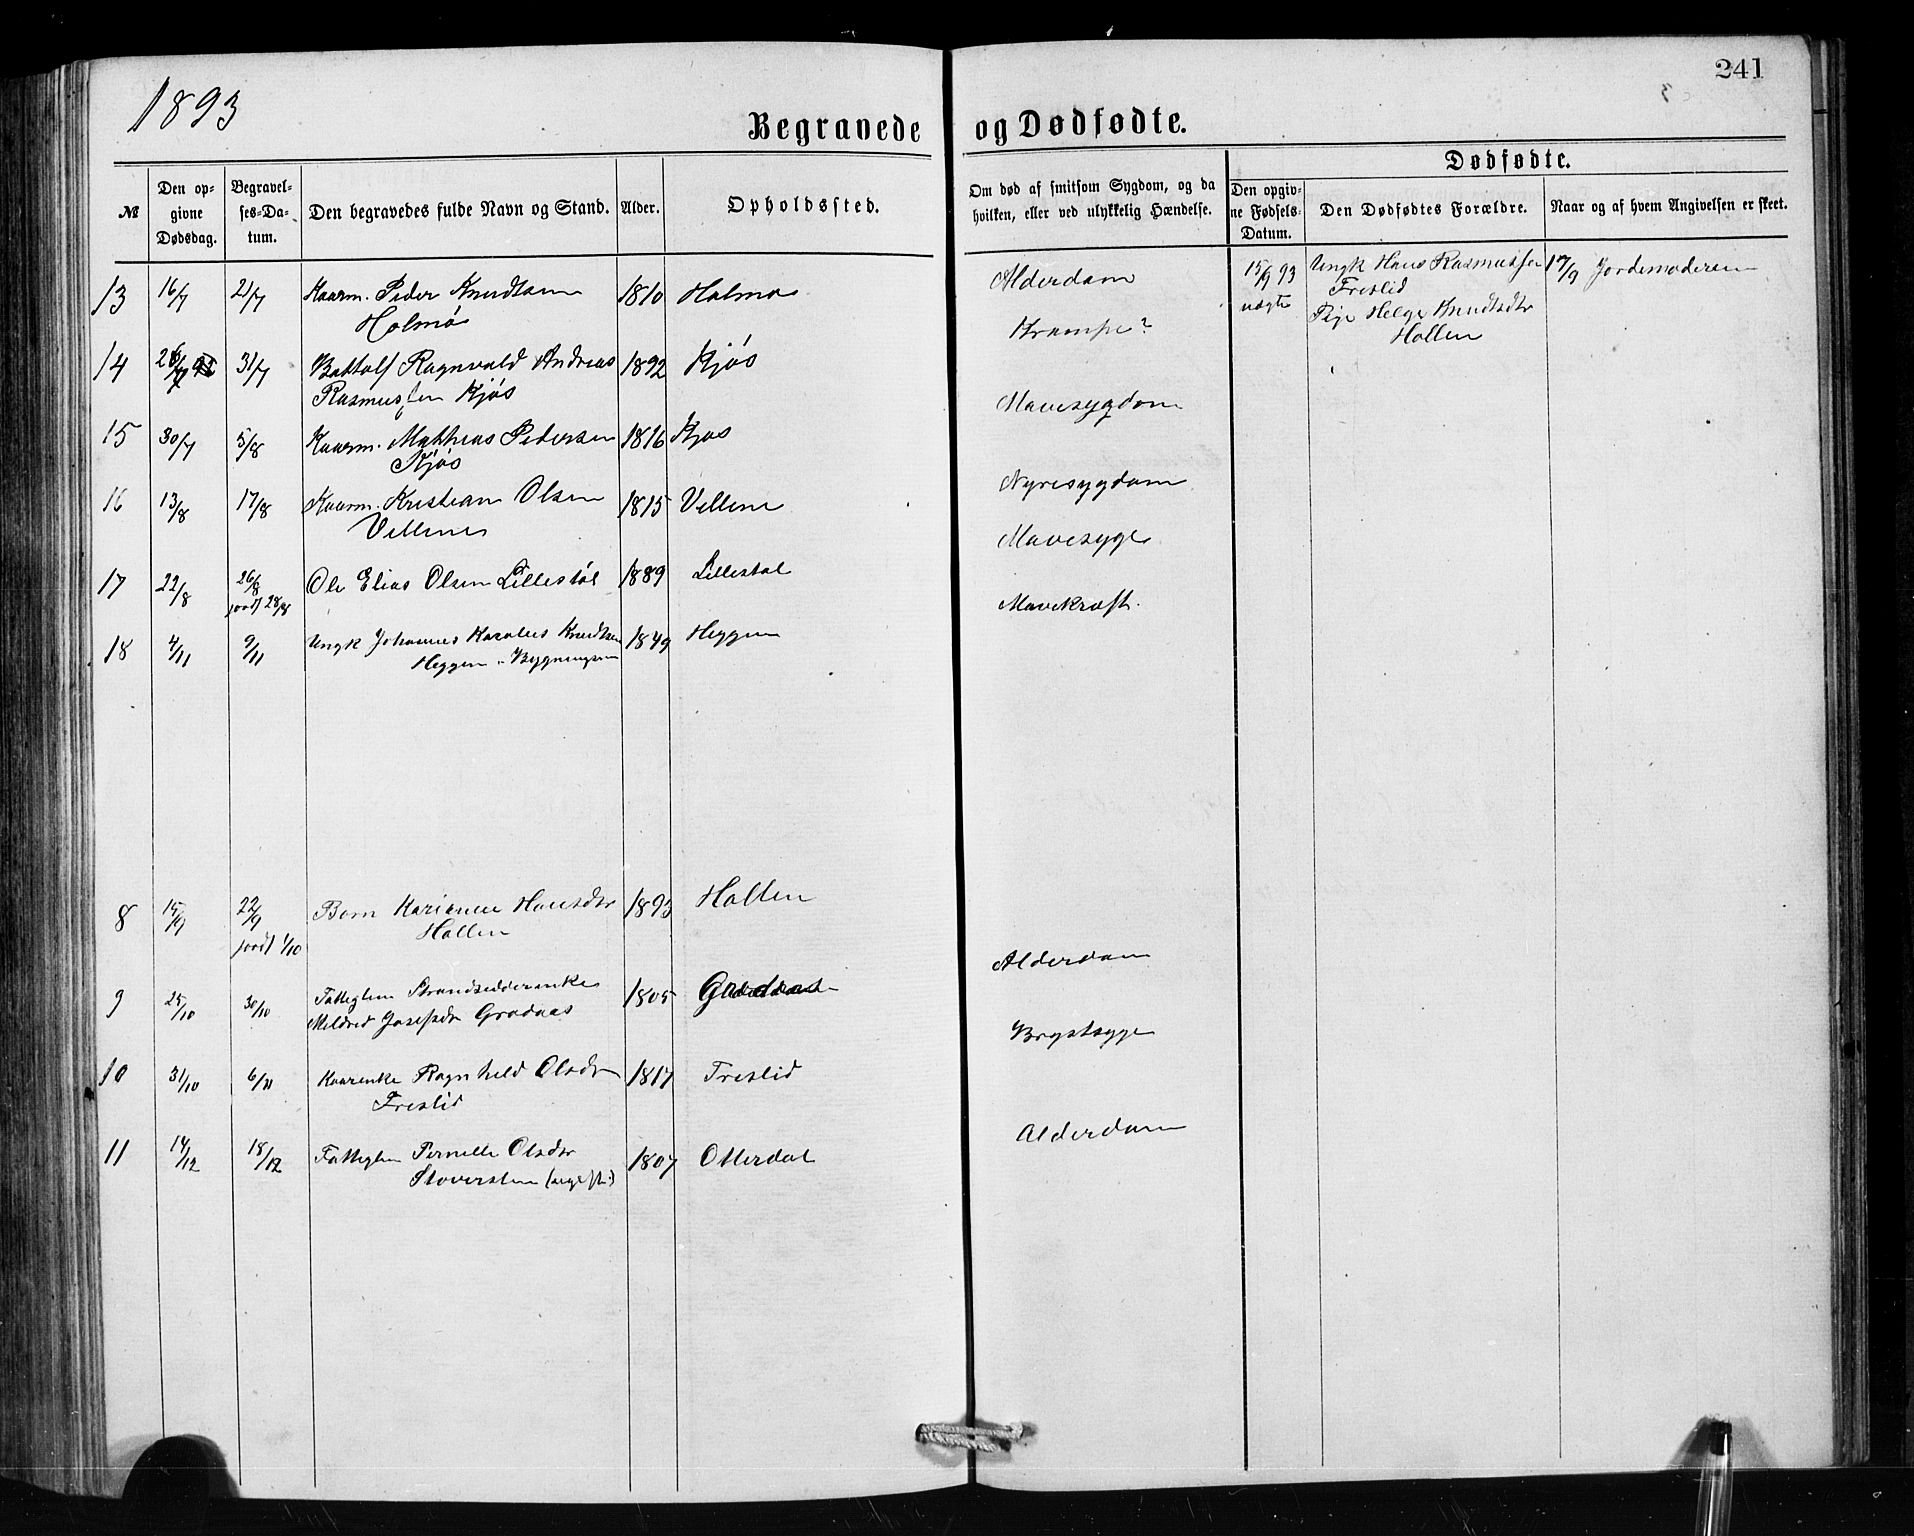 1893
241
Begravede og Dødfødte.
Dødfødte.
№
Den op-
givne
Dødsdag.
Begravel-
ses-Da-
tum.
Den begravedes fulde Navn og Stand.
Alder.
Opholdssted.
Om død af smitsom Sygdom, og da
hvilken, eller ved ulykkelig Hændelse.
Den opgiv-
ne Fødsels-
Datum.
Den Dødfødtes Forældre.
Naar og af hvem Angivelsen er skeet.
13 16/7 21/7 Kaarm. Peder Knudtsen 1810 Holmø Alderdom
Holmø
15/9 93 Ungk Hans Rasmussen 17/9 Jordemoderen
uægte Freslid
Pige Helge Knudtsdtr
Hollen
14 26/7 31/7 Bottolf Ragnvald Andreas 1892 Kjøs Krampe?
Rasmussen Kjøs
15 30/7 5/8 Kaarm. Mathias Pedersen 1816 Kjøs Mavesygdom
Kjøs
16 13/8 17/8 Kaarm. Kristian Olsen 1815 Vellene Nyresygdom
Vellene
17 22/8 26/8 Ole Elias Olsen Lillestøl 1889 Lillestøl Mavesyge
jordf 28/8
18 4/11 9/11 Ungk Johannes Karolus Knudtsen 1849 Heggen Mavekræft.
Heggen
8 15/9 22/9 Barn Karianne Hansdtr 1893 Hollen
jordf 1/10 Hollen
9 25/10 30/10 Fattiglem Strandsidderenke 1805 Alderdom
Mildrid Josefsdr Grodaas
10 31/10 6/11 Kaarenke Ragnhild Olsdr 1817 Freslid Brystsyge
Freslid
11 14/12 18/12 Fattiglem Pernille Olsdtr 1807 Otterdal Alderdom
Stoversten (ugift)